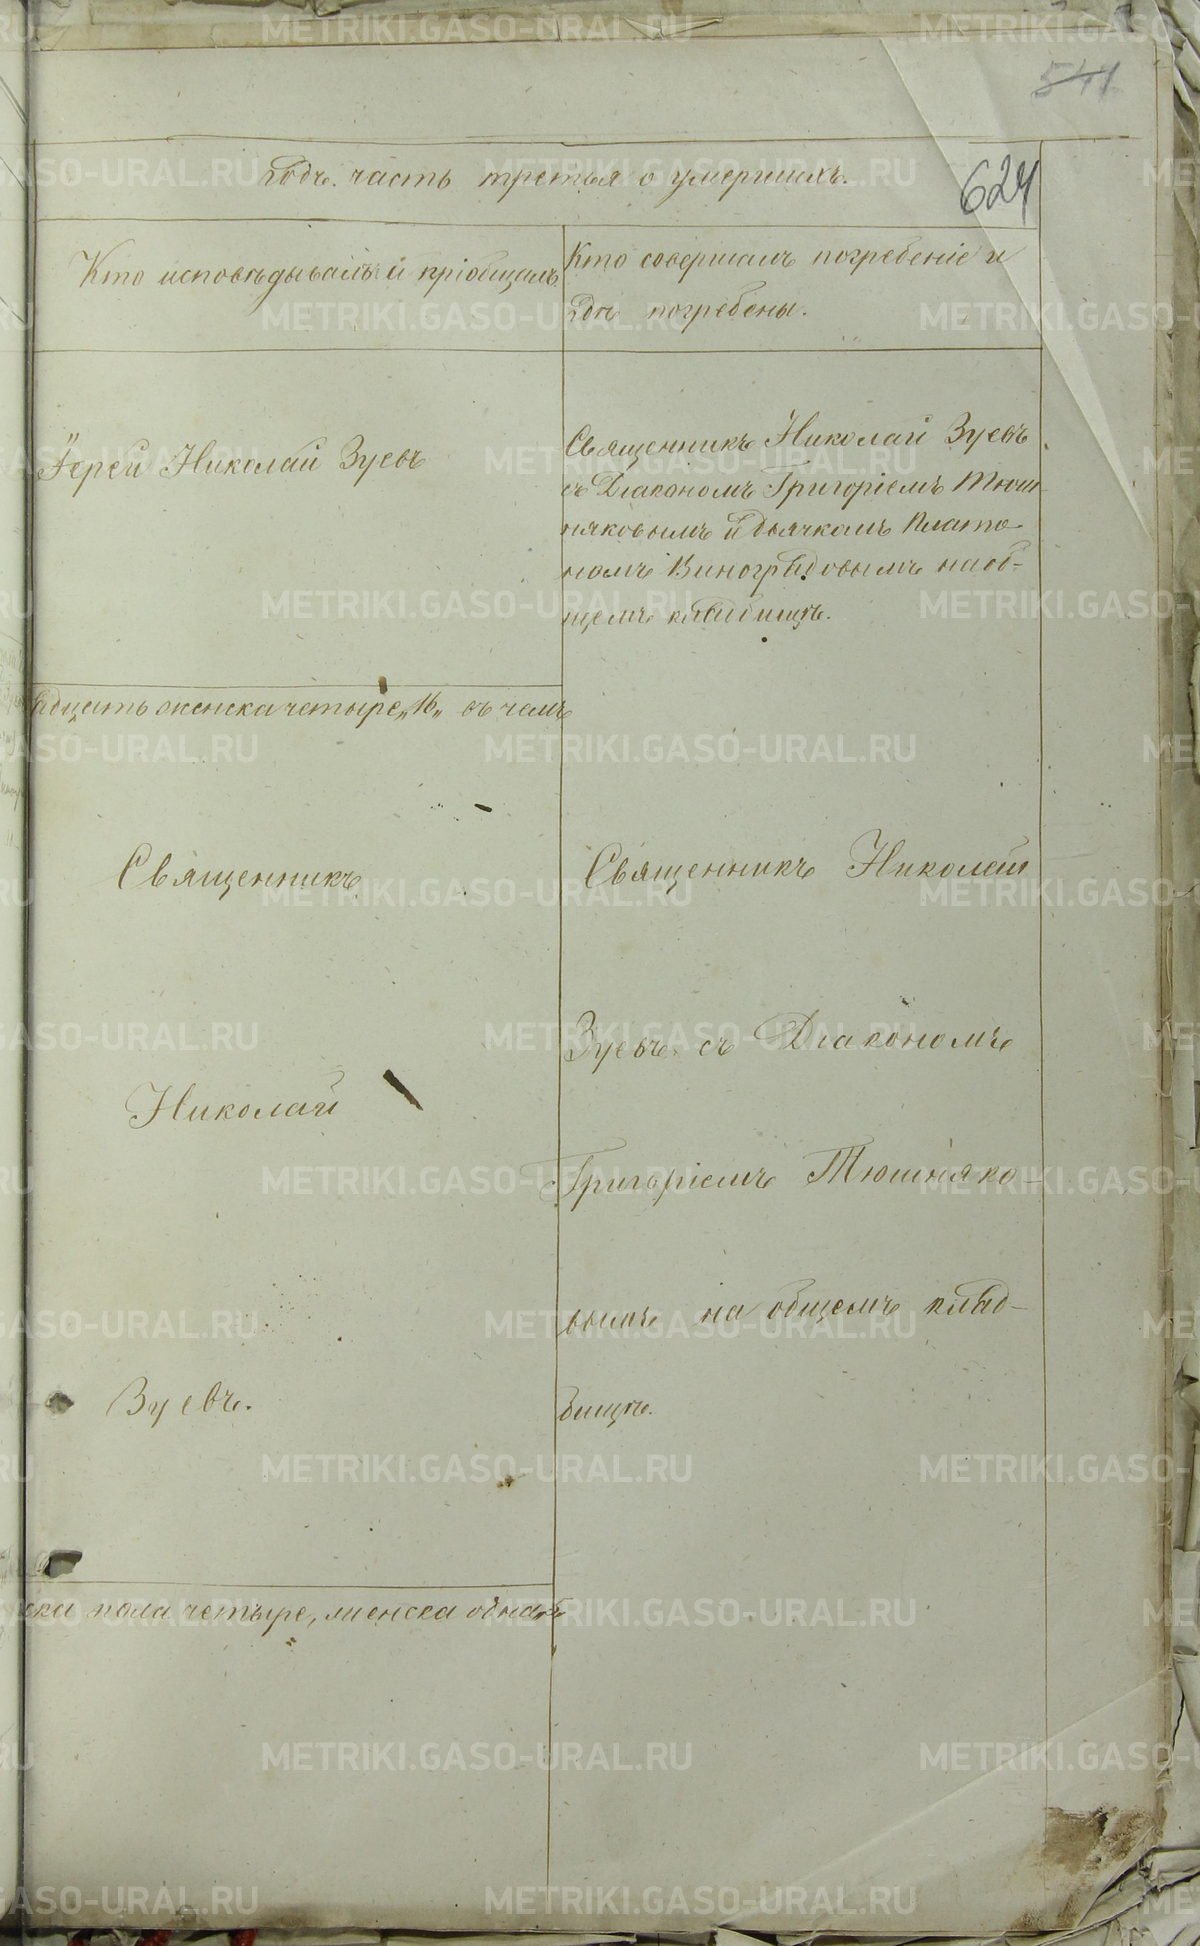 541
Годъ. часть третья о умершихъ.
624
Кто исповѣдывалъ и пріобщалъ
Кто совершалъ погребеніе и
гдѣ погребены.
Іерей Николай Зуевъ
Священникъ Николай Зуевъ
съ Діакономъ Григоріемъ Тюш-
няковымъ и дьячкомъ Плато-
номъ Виноградовымъ на об-
щемъ кладбищѣ.
адцать женска четыре „16„ въ чемъ
Священникъ
Николай
Зуевъ.
Священникъ Николай
Зуевъ съ Діакономъ
Григоріемъ Тюшняко-
вымъ на общемъ клад-
бищѣ.
ска пола четыре, женска одна
METRIKI.GASO-URAL.RU